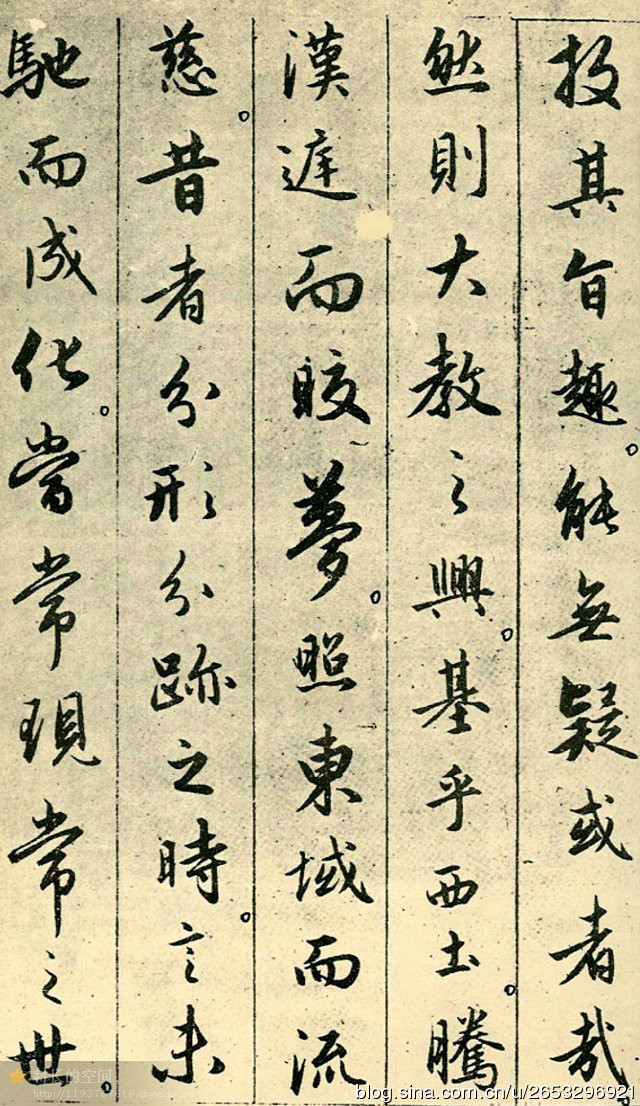 投其旨趣。能無疑或者哉。
然則大教之興。基乎西土。騰
漢庭而晈夢。照東域而流
慈。昔者分形分跡之時。言未
馳而成化。當常現常之世。
blog.sina.com.cn/u/2653296921